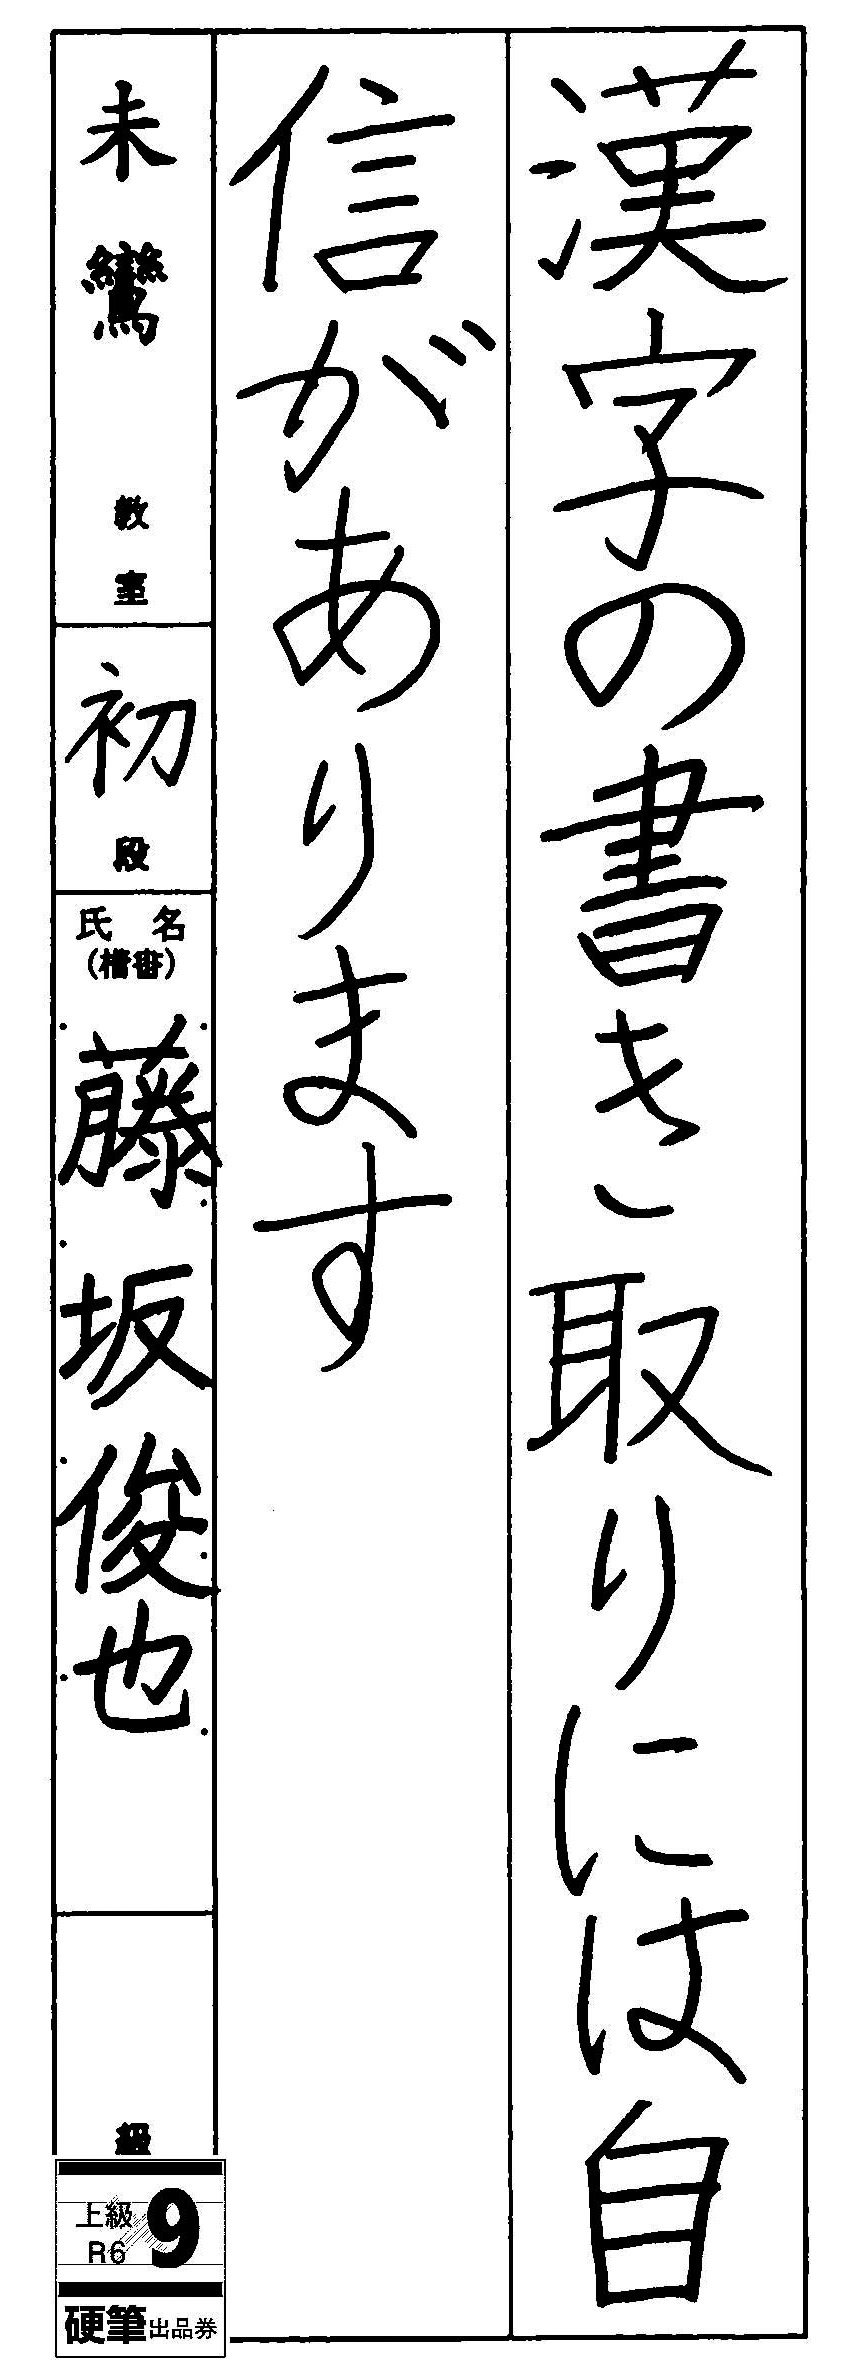 漢字の書き取りには自
信があります
未鸞 教室
初 段
氏名
(楷書)
藤坂俊也
級
上級
R6
9
硬筆出品券